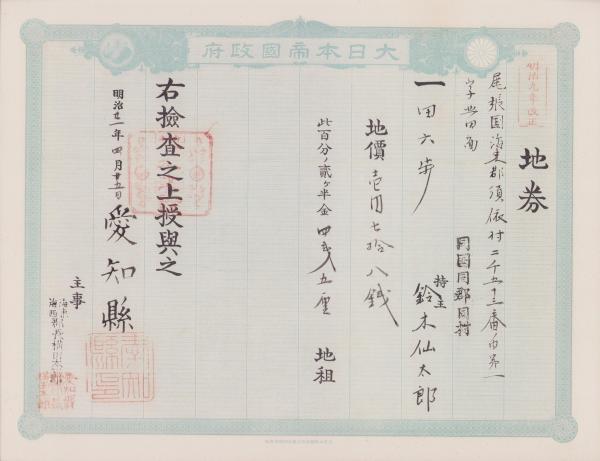 大日本帝國政府
明治九年改正
地券
尾張國海東郡須依村二千五十三番
同國同郡同村
持主 鈴木仙太郎
一田六歩
地價壱円七拾八銭
此百分ノ貳ヶ半金四銭五厘 地租
右撿査之上授與之
明治廿一年四月廿五日
愛知縣
主事